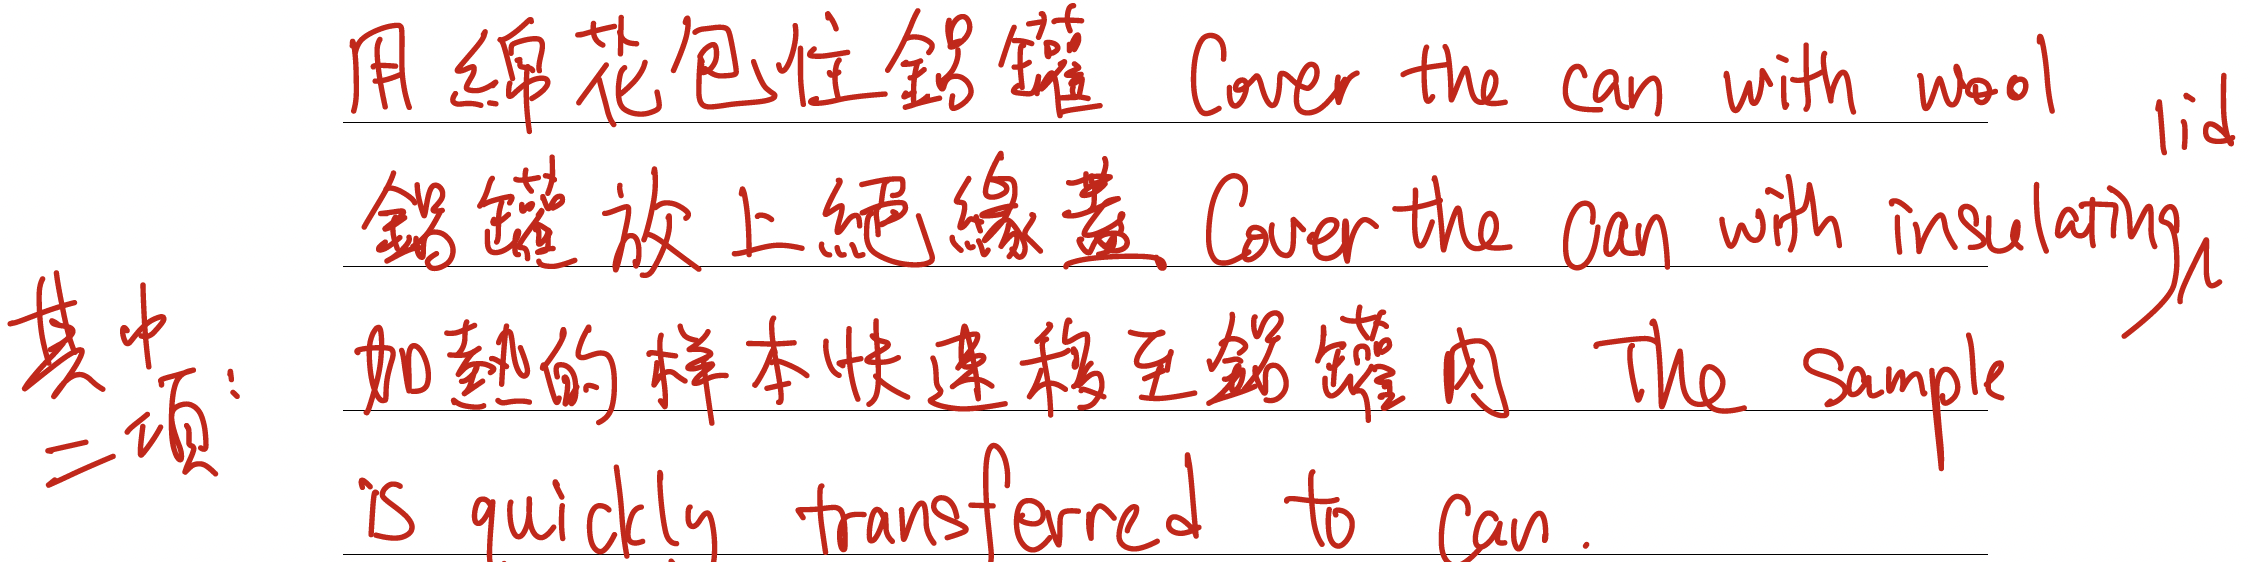 用綿花包住鋁罐 Cover the can with wool
鋁罐放上絕緣蓋 Cover the can with insulating lid
其中二項:
加熱的樣本快速移至鋁罐內 The sample
is quickly transferred to can.